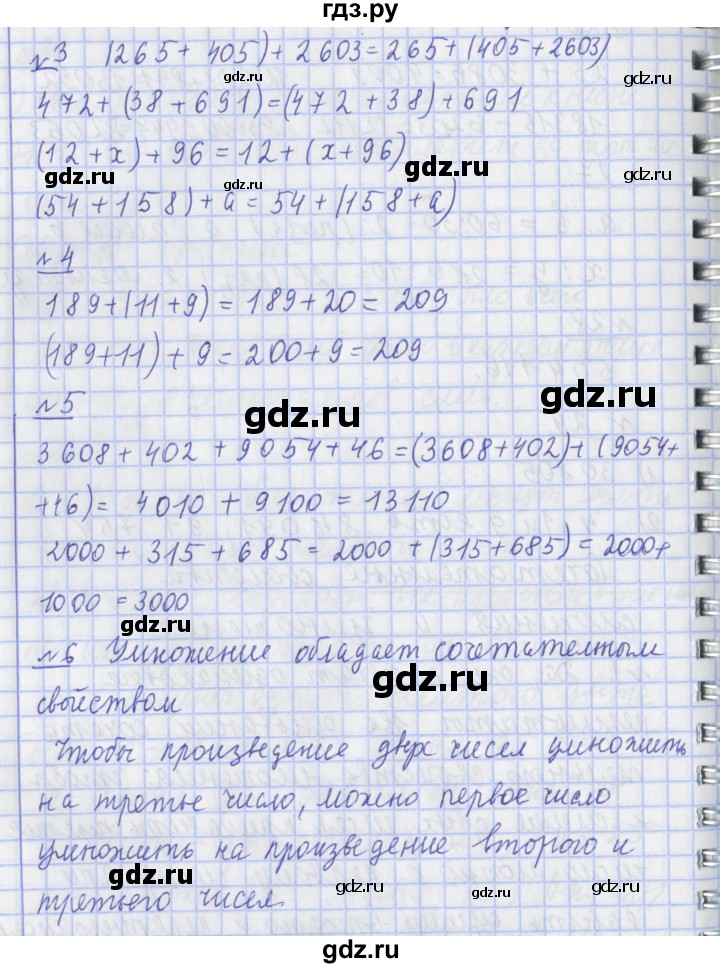 гдз.ру
№3 (265 + 405) + 2603 = 265 + (405 + 2603)
gdz.ru gdz.ru
472 + (38 + 691) = (472 + 38) + 691
(12 + x) + 96 = 12 + (x + 96)
gdz.ru gdz.ru gdz.ru
(54 + 158) + a = 54 + (158 + a)
№4
189 + (11 + 9) = 189 + 20 = 209
(189 + 11) + 9 = 200 + 9 = 209
gdz.ru
№5
gdz.ru
3608 + 402 + 9054 + 46 = (3608 + 402) + (9054 +
+46) = 4010 + 9100 = 13110
2000 + 315 + 685 = 2000 + (315 + 685) = 2000 +
1000 = 3000
gdz.ru
№6 Умножение обладает сочетательным
gdz.ru
свойством
Чтобы произведение двух чисел умножить
на третье число, можно первое число
умножить на произведение второго и
gdz.ru gdz.ru gdz.ru
третьего чисел.
gdz.ru